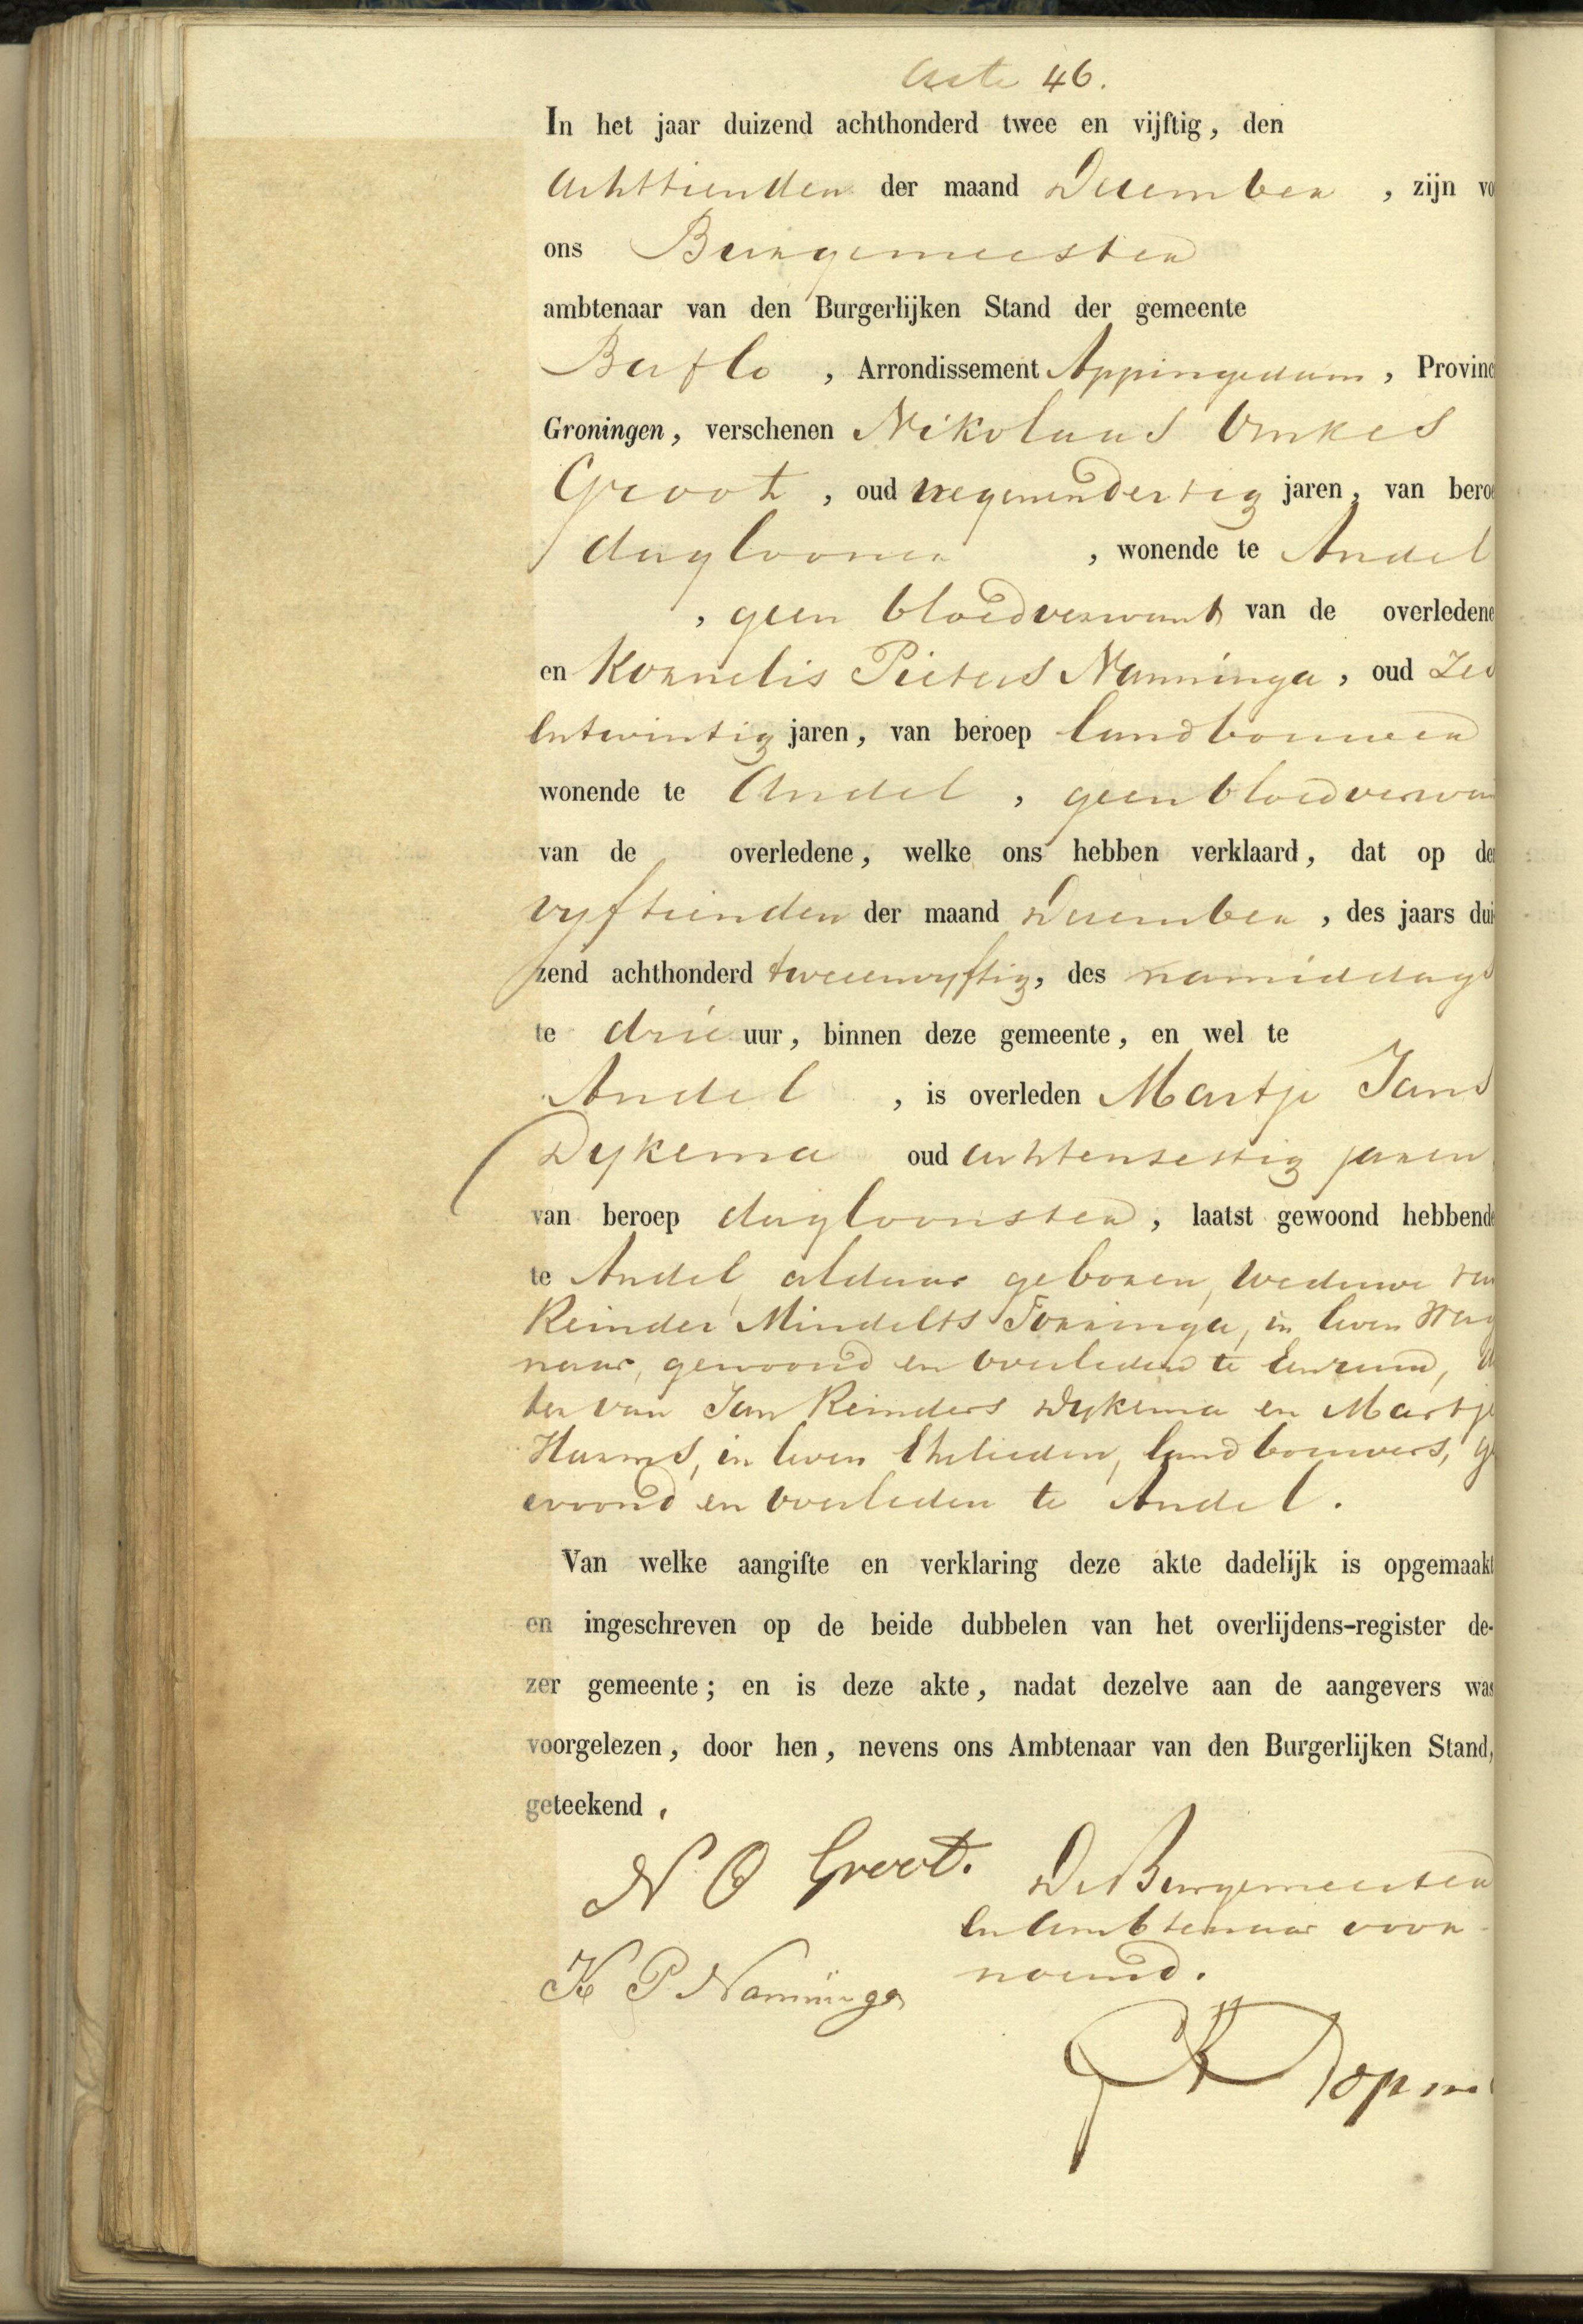 Acte 46.
In het jaar duizend achthonderd twee en vijftig, den
Achttienden der maand December, zijn vo
ons Burgemeester
ambtenaar van den Burgerlijken Stand der gemeente
Baflo, Arrondissement Appingedam, Provinc
Groningen, verschenen Nikolaas Onkes
Groot, oud negenendertig jaren, van bero
daglooner, wonende te Andel
, geen bloedverwant van de overledene
en Kornelis Pieters Nanninga, oud Zes
entwintig jaren, van beroep landbouwer
wonende te Andel, geen bloedverwan
van de overledene, welke ons hebben verklaard, dat op de
vyftienden der maand December, des jaars dui
zend achthonderd tweeenvyftig, des namiddags
te drie uur, binnen deze gemeente, en wel te
Andel, is overleden Martje Jans
Dykema oud achtensestig jaren
van beroep dagloonster, laatst gewoond hebbende
te Andel, aldaar geboren, weduwe van
Reinder Mindelts Torringa, in leven
naar, gewoond en overleden te Eenrum, d
ter van Jan Reinders Dykema en Martje
Harms, in leven Ehelieden, landbouwers, ge
woond en overleden te Andel.
Van welke aangifte en verklaring deze akte dadelijk is opgemaakt
en ingeschreven op de beide dubbelen van het overlijdens-register de-
zer gemeente; en is deze akte, nadat dezelve aan de aangevers was
voorgelezen, door hen, nevens ons Ambtenaar van den Burgerlijken Stand,
geteekend.
N O Groot. De Burgemeester
en Ambtenaar voor-
noemd.
K P Nanninga